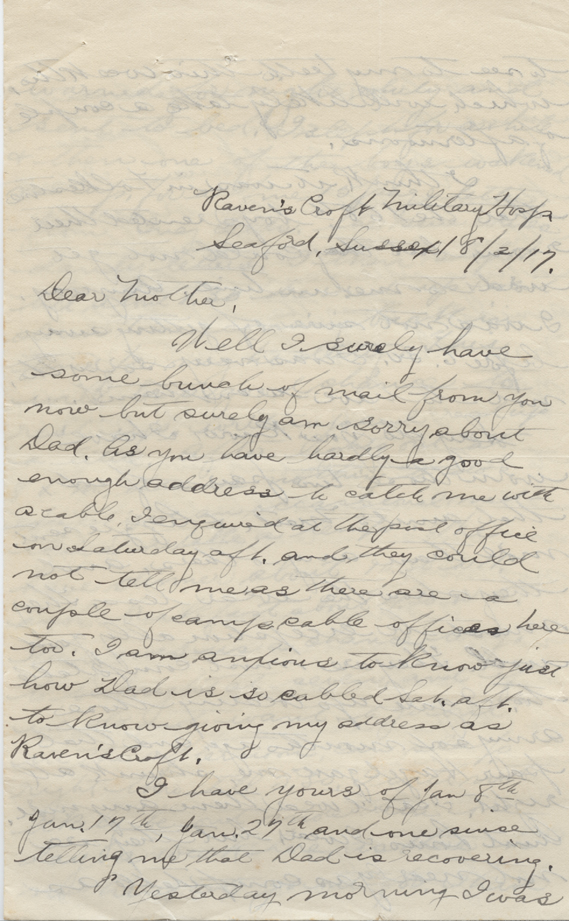 Raven's Croft Military Hosp
Seaford, Sussex 18/2/17.
Dear Mother,
Well I surely have
some bunch of mail from you
now but surely am sorry about
Dad. As you have hardly a good
enough address to catch me with
a cable, I enquired at the post office
on Saturday aft. and they could
not tell me as there are a
couple of camp cable offices here
too. I am anxious to know just
how Dad is so cabled Sat. aft.
to know giving my address as
Raven's Croft.
I have yours of Jan 8th
Jan. 17th, Jan. 27th and one since
telling me that Dad is recovering.
Yesterday morning I was